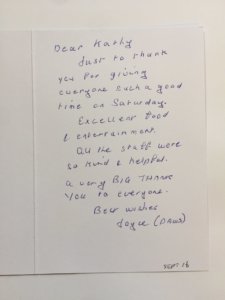 Dear Kathy
Just to thank
you for giving
everyone such a good
time on Saturday.
Excellent food
& entertainment.
All the staff were
so kind & helpful.
a very BIG THANK
YOU to everyone.
Best wishes
Joyce
SEPT 18